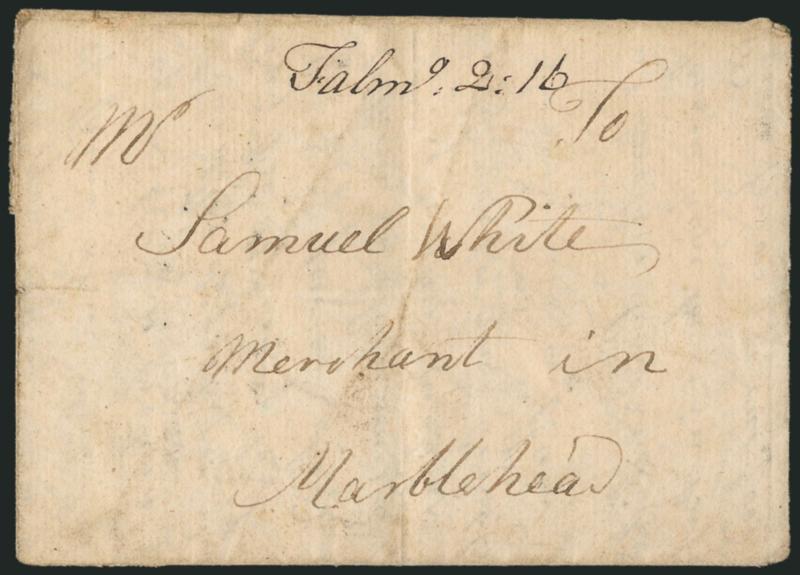 Falmº. 2:16
To
Mr
Samuel White
Merchant in
Marblehead